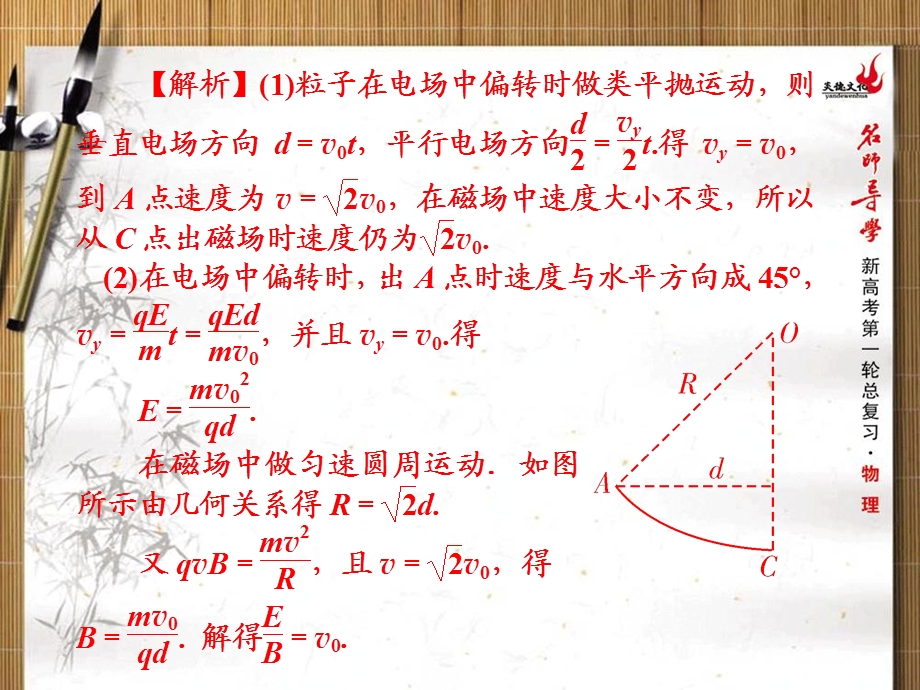 【解析】(1)粒子在电场中偏转时做类平抛运动，则
垂直电场方向 d = v₀t，平行电场方向 d/2 = v_y/2 t.得 v_y = v₀，
到 A 点速度为 v = √2v₀，在磁场中速度大小不变，所以
从 C 点出磁场时速度仍为√2v₀.
(2)在电场中偏转时，出 A 点时速度与水平方向成 45°，
v_y = qE/m t = qEd/mv₀，并且 v_y = v₀.得
E = mv₀²/qd.
在磁场中做匀速圆周运动．如图
所示由几何关系得 R = √2d.
又 qvB = mv²/R，且 v = √2v₀，得
B = mv₀/qd. 解得E/B = v₀.
O
R
A
d
C
炎德文化
yandewenhua
名师导學
新高考第一轮总复习·物理